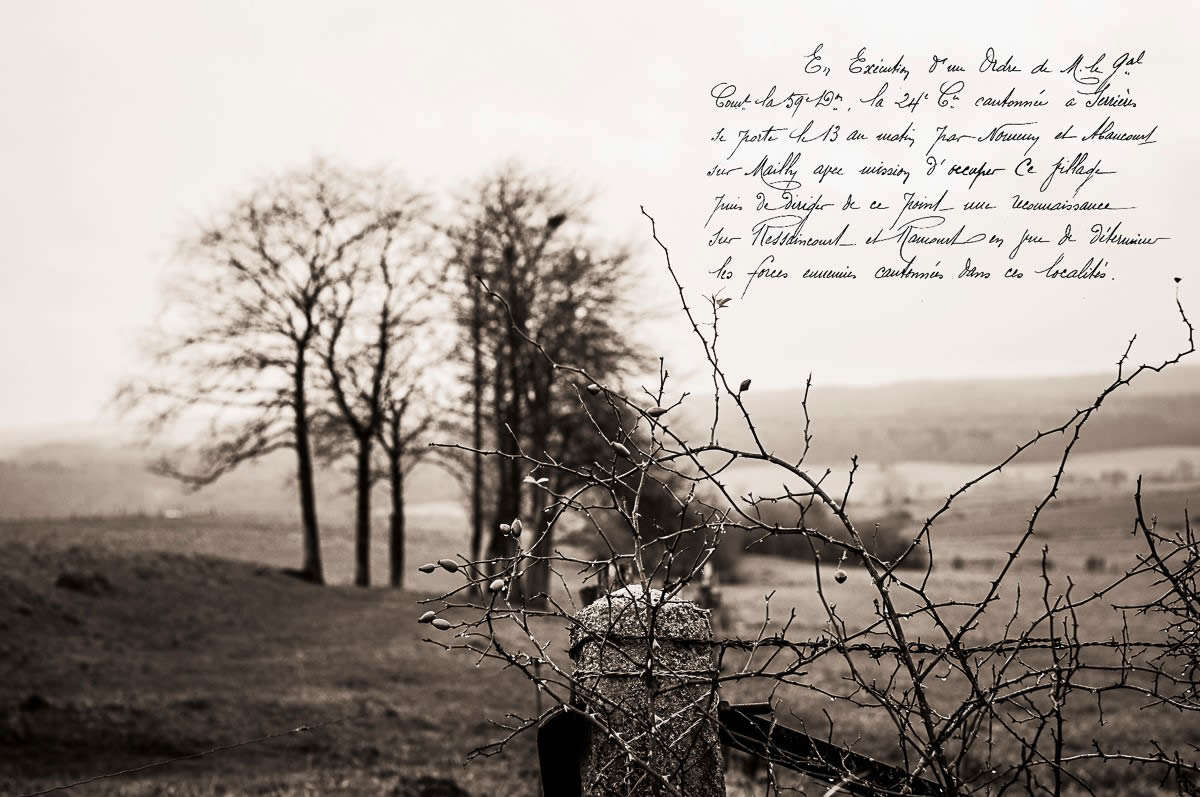 En Exécution d'un Ordre de M. le Gal
Comt la 59e Don, la 24e Cie cantonnée à Serrières
se porte le 13 au matin par Nomeny et Abaucourt
sur Mailly avec mission d'occuper Ce village
puis de diriger de ce point une reconnaissance
sur Ressaincourt et Raucourt en vue de déterminer
les forces ennemies cantonnées dans ces localités.